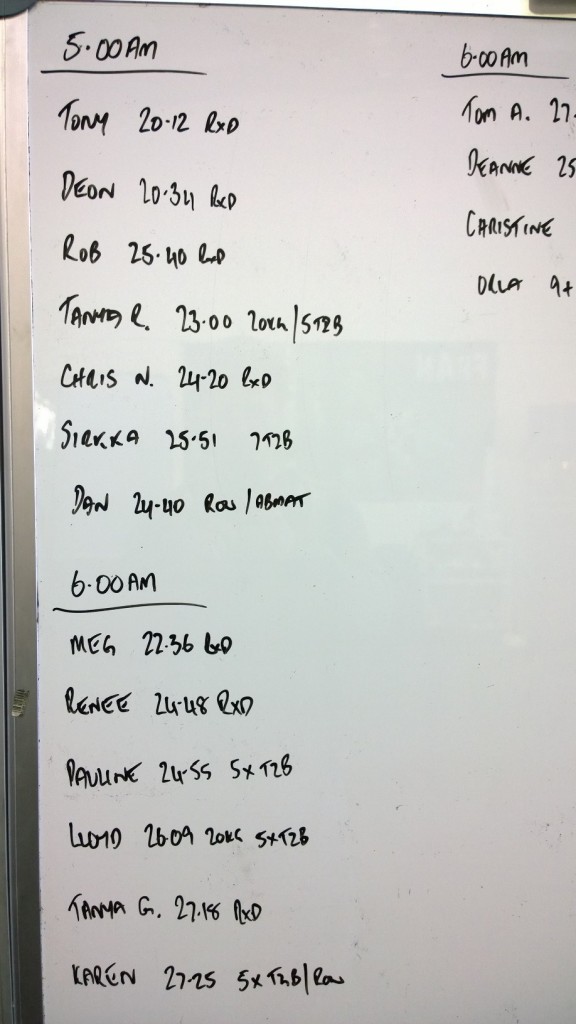 5.00AM
TONY 20-12 RxD
DEON 20.34 RxD
ROB 25.40 RxD
TANYA R. 23.00 20KG/5T2B
CHRIS N. 24-20 RxD
SIRKKA 25.51 7T2B
DAN 24-40 ROW/ABMAT
6.00AM
MEG 22.36 RxD
RENEE 24-48 RxD
PAULINE 24-55 5xT2B
LLOYD 26.09 20KG 5xT2B
TANYA G. 27.18 RxD
KAREN 27-25 5xT2B/ROW
6.00AM
TOM A. 27.
DEANNE 25
CHRISTINE
ORLA 9+